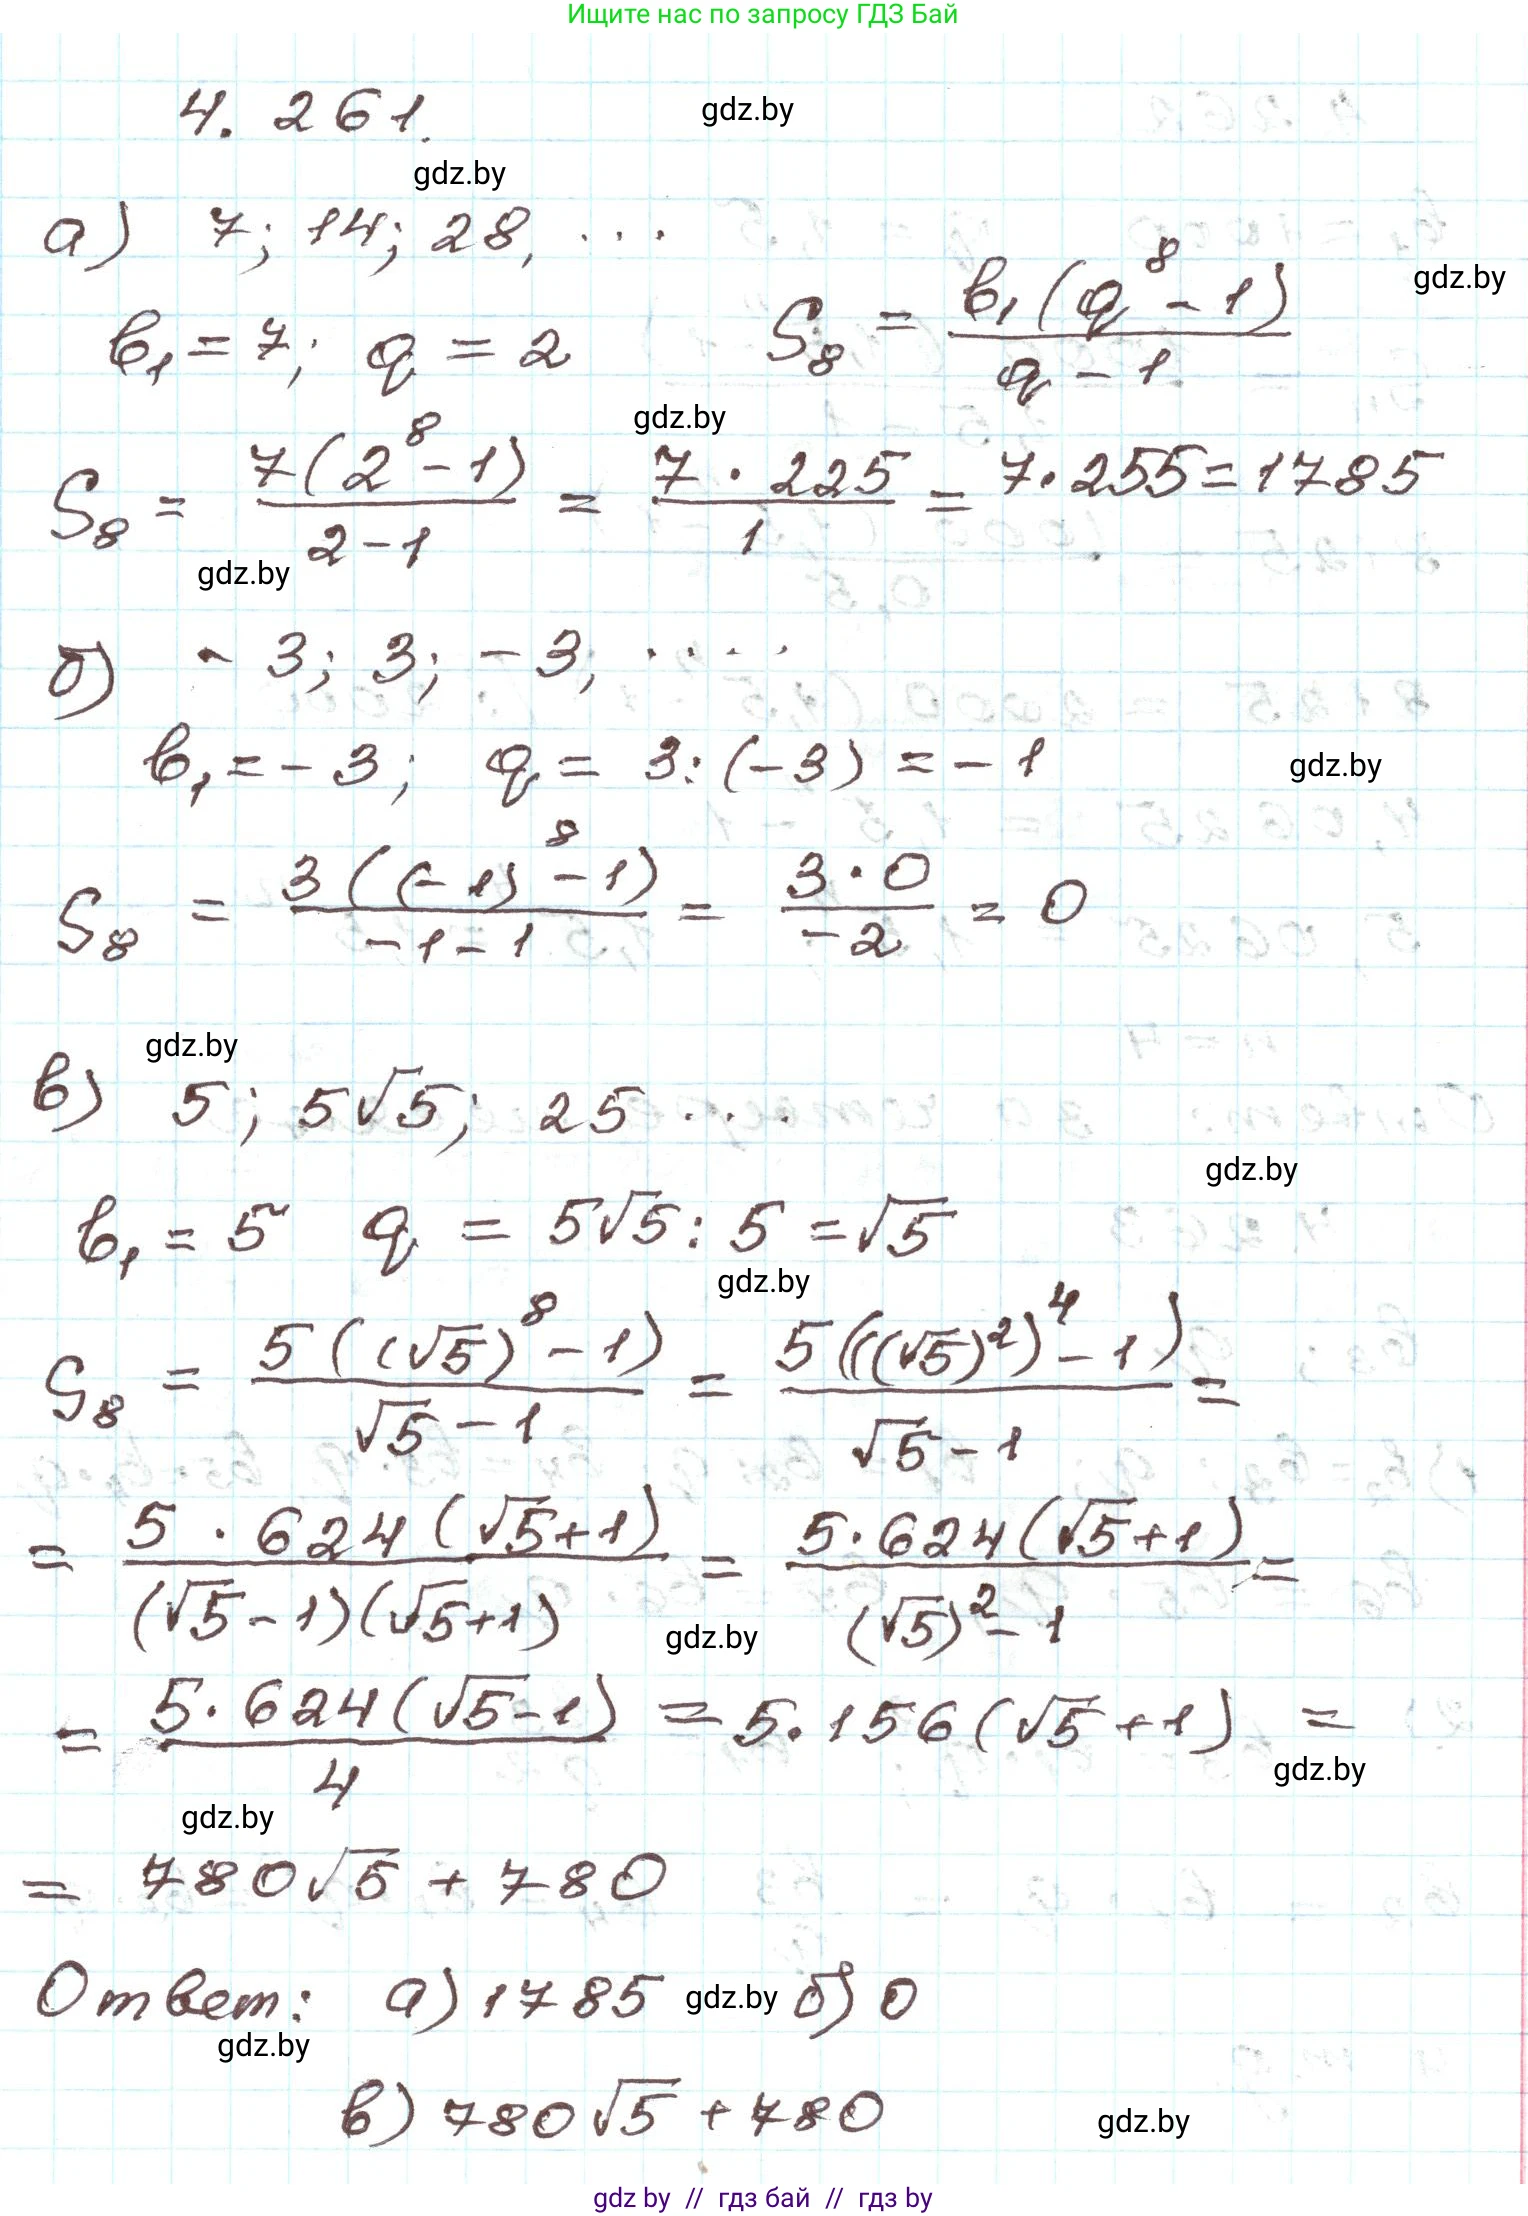 Ищите нас по запросу ГДЗ Бай
4. 261. gdz.by
gdz.by
а) 7; 14; 28, ...
gdz.by
b₁ = 7; q = 2 S₈ = b₁(q⁸ - 1) / q - 1
gdz.by
S₈ = 7(2⁸ - 1) / 2 - 1 = 7 · 225 / 1 = 7 · 255 = 1785
gdz.by
б) - 3; 3; - 3; ....
b₁ = - 3; q = 3 : (-3) = - 1 gdz.by
S₈ = 3((-1)⁸ - 1) / -1 - 1 = 3 · 0 / -2 = 0
gdz.by
в) 5; 5√5; 25 ...
gdz.by
b₁ = 5 q = 5√5 : 5 = √5
gdz.by
S₈ = 5((√5)⁸ - 1) / √5 - 1 = 5(((√5)²)⁴ - 1) / √5 - 1 =
= 5 · 624(√5 + 1) / (√5 - 1)(√5 + 1) = 5 · 624(√5 + 1) / (√5)² - 1 =
gdz.by
= 5 · 624(√5 - 1) / 4 = 5 · 156(√5 + 1) =
gdz.by
gdz.by
= 780√5 + 780
Ответ: а) 1785 gdz.by б) 0
gdz.by
в) 780√5 + 780 gdz.by
gdz by // гдз бай // гдз by